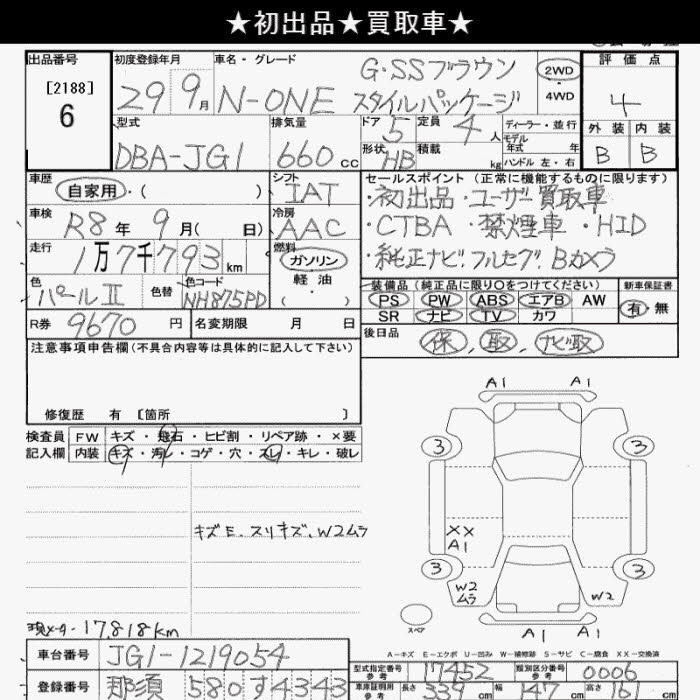 ★初出品★買取車★
出品番号
[2188]
6
初度登録年月
29 9月
車名・グレード
N-ONE
G・SSブラウン
スタイルパッケージ
2WD
・
4WD
評価点
4
外装 内装
B B
型式
DBA-JG1
排気量
660 cc
ドア 5
定員 4 人
形状 HB
積載 kg
ディーラー・並行
モデル
年式 年
ハンドル 左・右
車歴
自家用・( )
シフト
IAT
車検
R8年 9月( 日)
冷房
AAC
走行
1万7千793km
燃料
ガソリン
・
軽油
・
( )
色
パールⅡ
色替
色コード
NH875PD
R券 9670 円
名変期限 月 日
セールスポイント(正常に機能するものに限ります)
・初出品・ユーザー買取車
・CTBA ・禁煙車 ・HID
・純正ナビ、フルセグ、Bカメラ
装備品(純正品に限り○をつけてください)
PS PW ABS エアB AW
SR ナビ TV カワ
新車保証書
有・無
後日品
保、取、ナビ取
注意事項申告欄(不具合内容等は具体的に記入して下さい)
修復歴 有 [箇所 ]
検査員
記入欄
FW キズ・飛石・ヒビ割・リペア跡・×要
内装 キズ・汚レ・コゲ・穴・スレ・キレ・破レ
キズE、スリキズ、W2ムラ
現メーター17,818km
A1 A1
3 3
XX
A1
3 3
W2
ムラ
W2
A1 A1
スペア
A－キズ E－エクボ U－凹み W－補修跡 S－サビ C－腐食 XX－交換済
車台番号 JG1-1219054
登録番号 那須 580す4343
型式指定番号
参考
17452
類別区分番号
参考
0006
車庫証明用
参考
長さ 339 cm
幅 147 cm
高さ cm